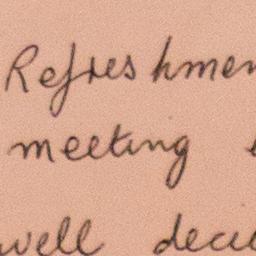 Refreshmen
meeting
well deci